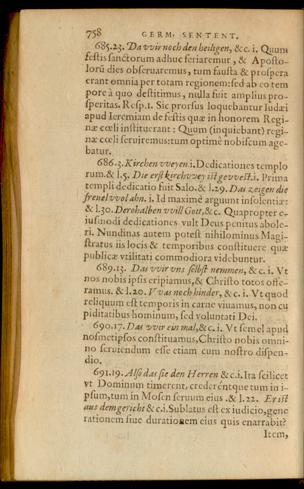 758 GERM. SENTENT.
685.23. Da wir noch den heiligen, &c. i. Quum
festis sanctorum adhuc feriaremur, & Aposto-
lorũ dies obseruaremus, tum fausta & prospera
erant omnia per totam regionem: sed ab eo tem
pore à quo destitimus, nulla fuit amplius pro-
speritas. Resp.1. Sic prorsus loquebantur Iudæi
apud Ieremiam de festis quæ in honorem Regi-
næ cœli instituerant: Quum (inquiebant) regi-
næ cœli seruiremus: tum optimè nobiscum age-
batur.
686.3. Kirchen vveyen i. Dedicationes templo
rum. & l.5. Die erst kirchvvey ist gevvest. i. Prima
templi dedicatio fuit Salo. & l.29. Das zeigen die
frenel vvol ahn. i. Id maximè arguunt insolentiæ:
& l.30. Derohalben vvill Gott, &c. Quapropter e-
iusmodi dedicationes vult Deus penitus abole-
ri. Nundinas autem potest nihilominus Magi-
stratus iis locis & temporibus constituere quæ
publicæ vtilitati commodiora videbuntur.
689.13. Das vvir vns selbst nemmen, & c. i. Vt
nos nobis ipsis eripiamus, & Christo totos offe-
ramus. & l.20. VVas noch hinder, & c. i. Vt quod
reliquum est temporis in carne viuamus, non cu
piditatibus hominum, sed voluntati Dei.
690.17. Das vvir ein mal, &c. i. Vt semel apud
nosmetipsos constituamus, Christo nobis omni-
no seruiendum esse etiam cum nostro dispen-
dio.
691.19. Also das sie den Herren & c. i. Ita scilicet
vt Dominum timerent, crederéntque tum in i-
psum, tum in Mosen seruum eius. & l.22. Er ist
aus dem gericht & c. i. Sublatus est ex iudicio, gene
rationem siue durationem eius quis enarrabit?
Item,